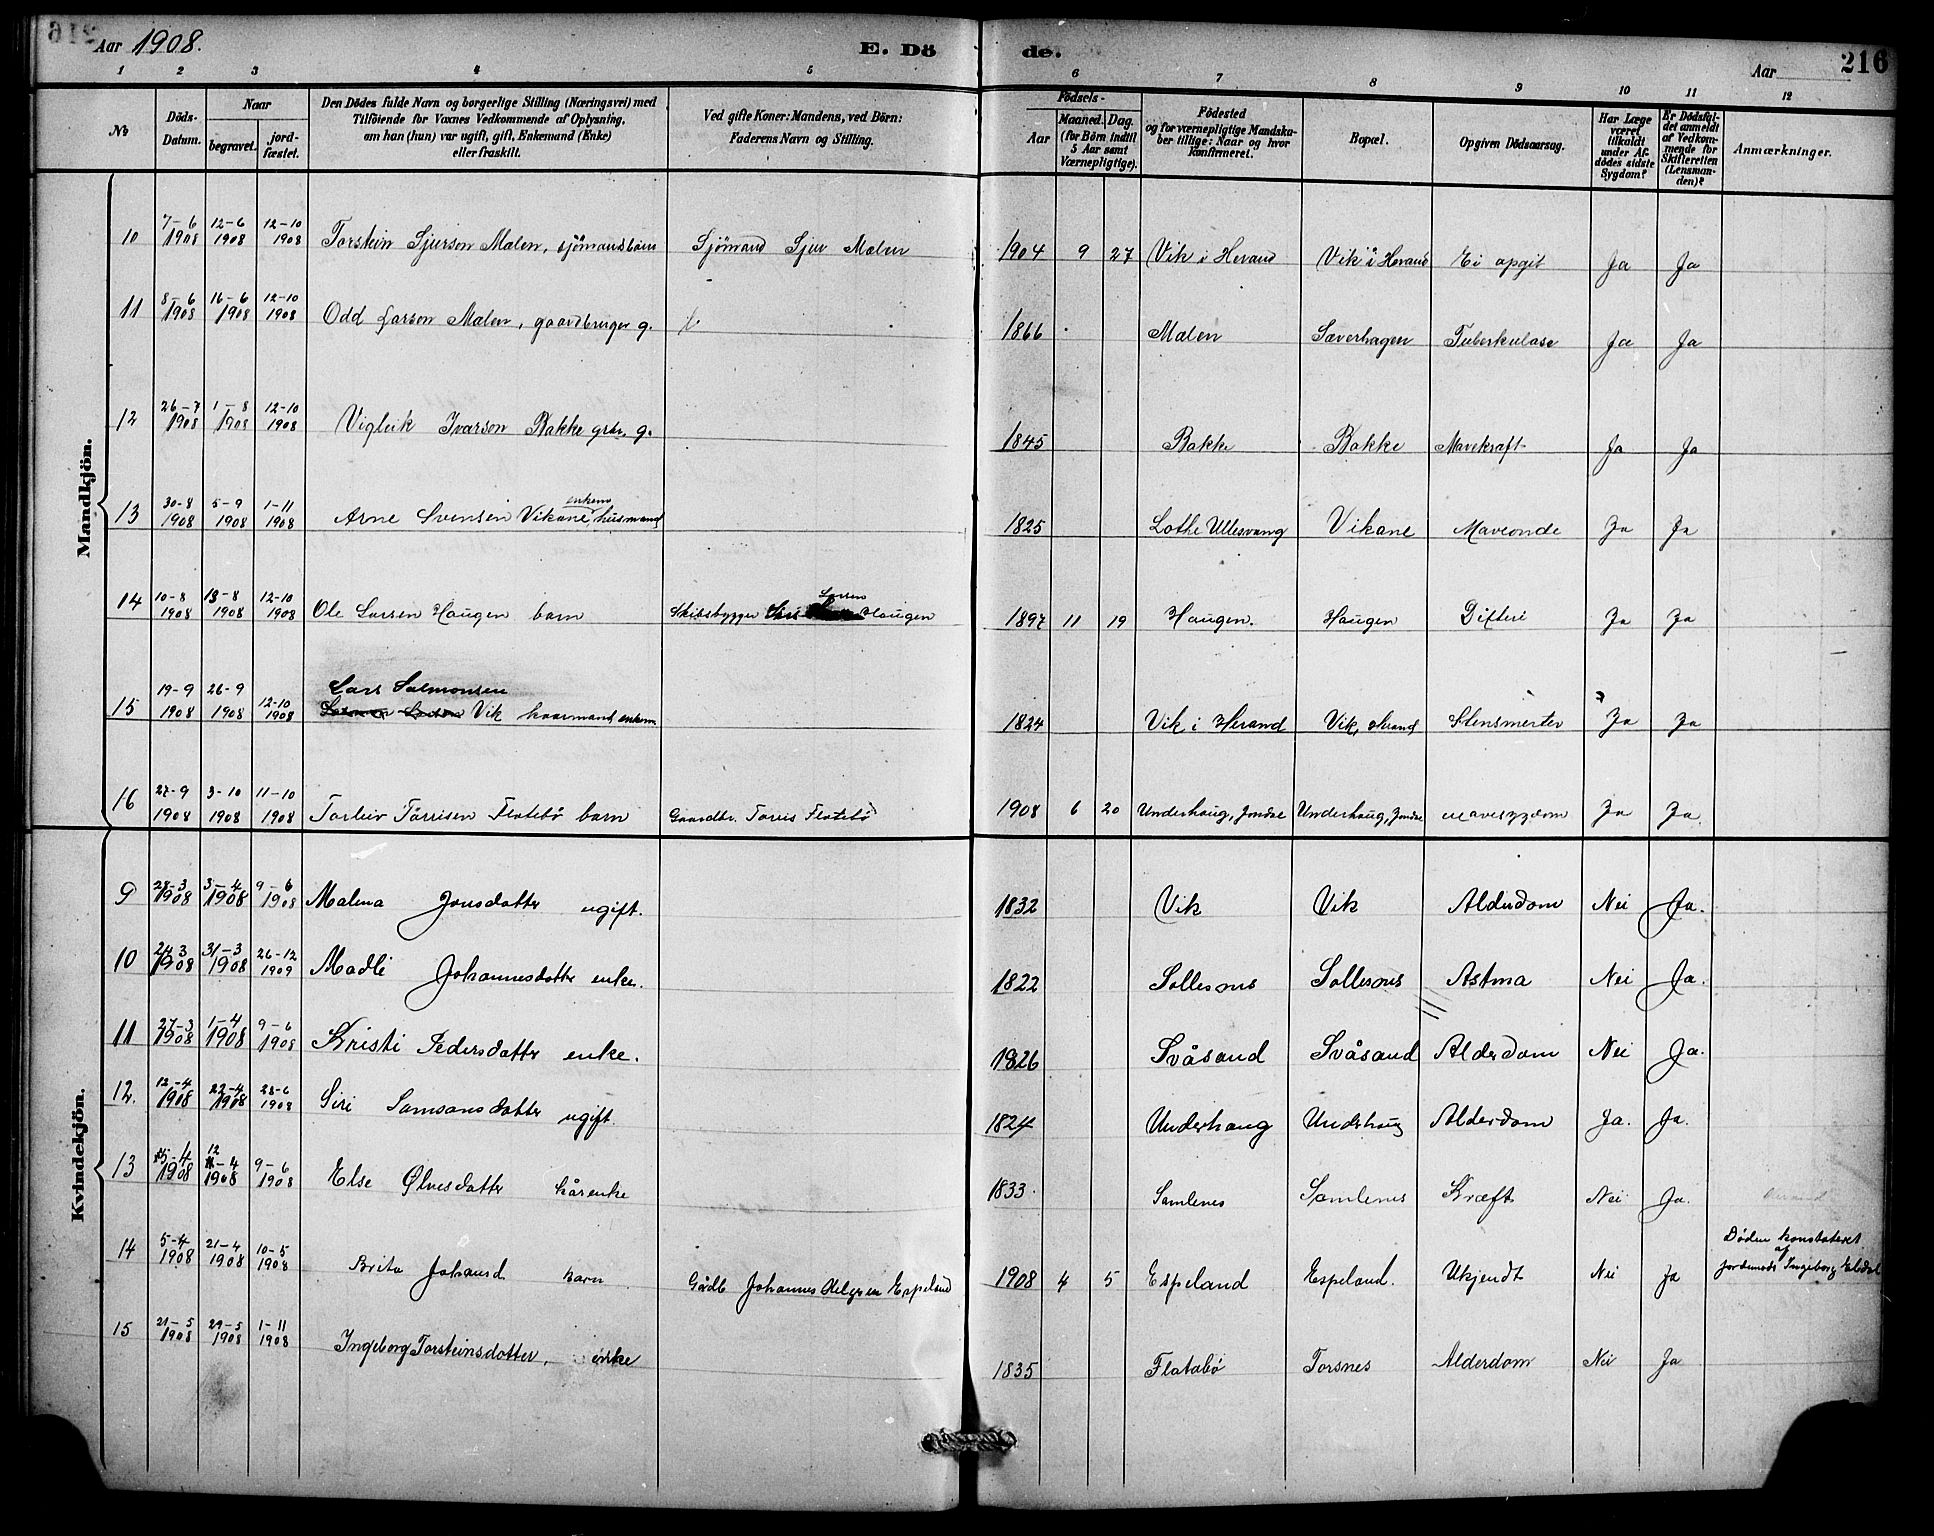 Aar 1908. E. Dö de. Aar 216
1 2 3 4 5 6 7 8 9 10 11 12
No
Döds-Datum.
Naar
begravet.
jord-fæstet.
Den Dödes fulde Navn og borgerlige Stilling (Næringsvei) med
Tilföiende for Voxnes Vedkommende af Oplysning,
om han (hun) var ugift, gift, Enkemand (Enke)
eller fraskilt.
Ved gifte Koner: Mandens, ved Börn:
Faderens Navn og Stilling.
Födsels-
Aar
Maaned. Dag.
(for Börn indtil
5 Aar samt
Værnepligtige).
Födested
og for værnepligtige Mandska-
ber tillige: Naar og hvor
konfirmeret.
Bopæl.
Opgiven Dödsaarsag.
Har Læge
været
tilkaldt
under Af-
dödes sidste
Sygdom?
Er Dödsfal-
det anmeldt
af Vedkom-
mende for
Skifteretten
(Lensman-
den)?
Anmærkninger.
Mandkjön.
10 7-6 1908 12-6 1908 12-10 1908 Torstein Sjurson Malen, sjömandsbarn Sjömand Sjur Malen 1904 9 27 Vik i Herand Vik i Herand Ei opgit Ja Ja
11 8-6 1908 16-6 1908 12-10 1908 Odd Larson Malen, gaardbruger g. 1866 Malen Saverhagen Tuberkulose Ja Ja
12 26-7 1908 1-8 1908 12-10 1908 Vigleik Ivarson Bakke grbr. g. 1845 Bakke Bakke Mavekræft Ja Ja
13 30-8 1908 5-9 1908 1-11 1908 Arne Svensen Vikane, enkem husmand 1825 Lothe Ullesvang Vikane Maveonde Ja Ja
14 10-8 1908 13-8 1908 12-10 1908 Ole Larsen Haugen barn Skibsbygger Lars Larsen Haugen 1897 11 19 Haugen. Haugen Difteri Ja Ja
15 19-9 1908 26-9 1908 12-10 1908 Lars Salmonsen Vik kaarmand enkem. 1824 Vik i Herand Vik, Herand Stensmerter Ja Ja
16 27-9 1908 3-10 1908 11-10 1908 Torleiv Torrisen Flotebö barn Gaardbr. Torris Flotebö 1908 6 20 Underhaug, Jondal Underhaug, Jondal Mavesygdom Ja Ja.
Kvindekjön.
9 28-3 1908 3-4 1908 9-6 1908 Malena Jonsdatter ugift. 1832 Vik Vik Alderdom Nei Ja.
10 24-3 1908 31-3 1908 26-12 1909 Madli Johannesdatter enke. 1822 Sollesnes Sollesnes Astma Nei Ja.
11 27-3 1908 1-4 1908 9-6 1908 Kristi Pedersdatter enke. 1826 Svåsand Svåsand Alderdom Nei Ja.
12. 12-4 1908 22-4 1908 28-6 1908 Siri Samsonsdatter ugift. 1824 Underhaug Underhaug Alderdom Ja. Ja.
13 5-4 1908 12-4 1908 9-6 1908 Else Ølvesdatter kårenke 1833 Samlenes Samlenes Kræft Nei Ja.
14 5-4 1908 21-4 1908 10-5 1908 Brita Johansd. barn Gårdb Johannes Helgesen Espeland 1908 4 5 Espeland Espeland. Ukjendt Nei Ja Døden konstateret af jordemoder Ingeborg
15 21-5 1908 29-5 1908 1-11 1908 Ingeborg Torsteinsdotter, enke 1835 Flatabø Torsnes Alderdom Nei Ja